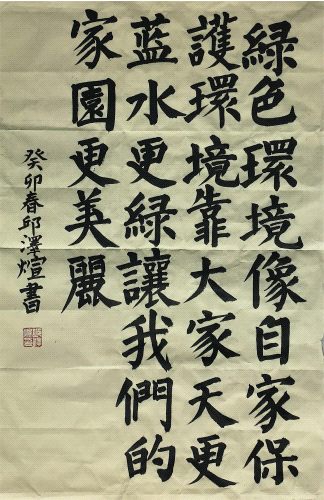 綠色環境像自家保
護環境靠大家天更
藍水更綠讓我們的
家園更美麗
癸卯春邱澤煊書